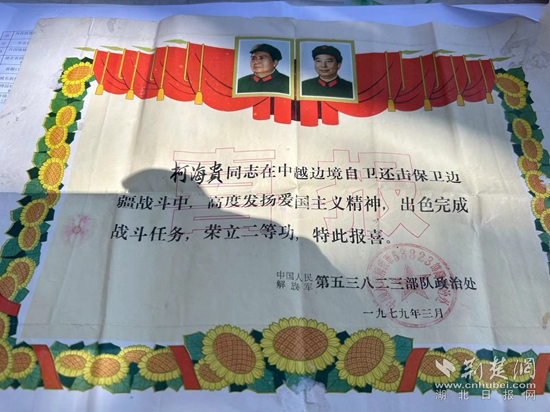 喜报
柯海贵同志在中越边境自卫还击保卫边
疆战斗中，高度发扬爱国主义精神，出色完成
战斗任务，荣立二等功，特此报喜。
中国人民
解放军
第五三八二三部队政治处
一九七九年三月
荆楚网
www.cnhubei.com
湖北日报网